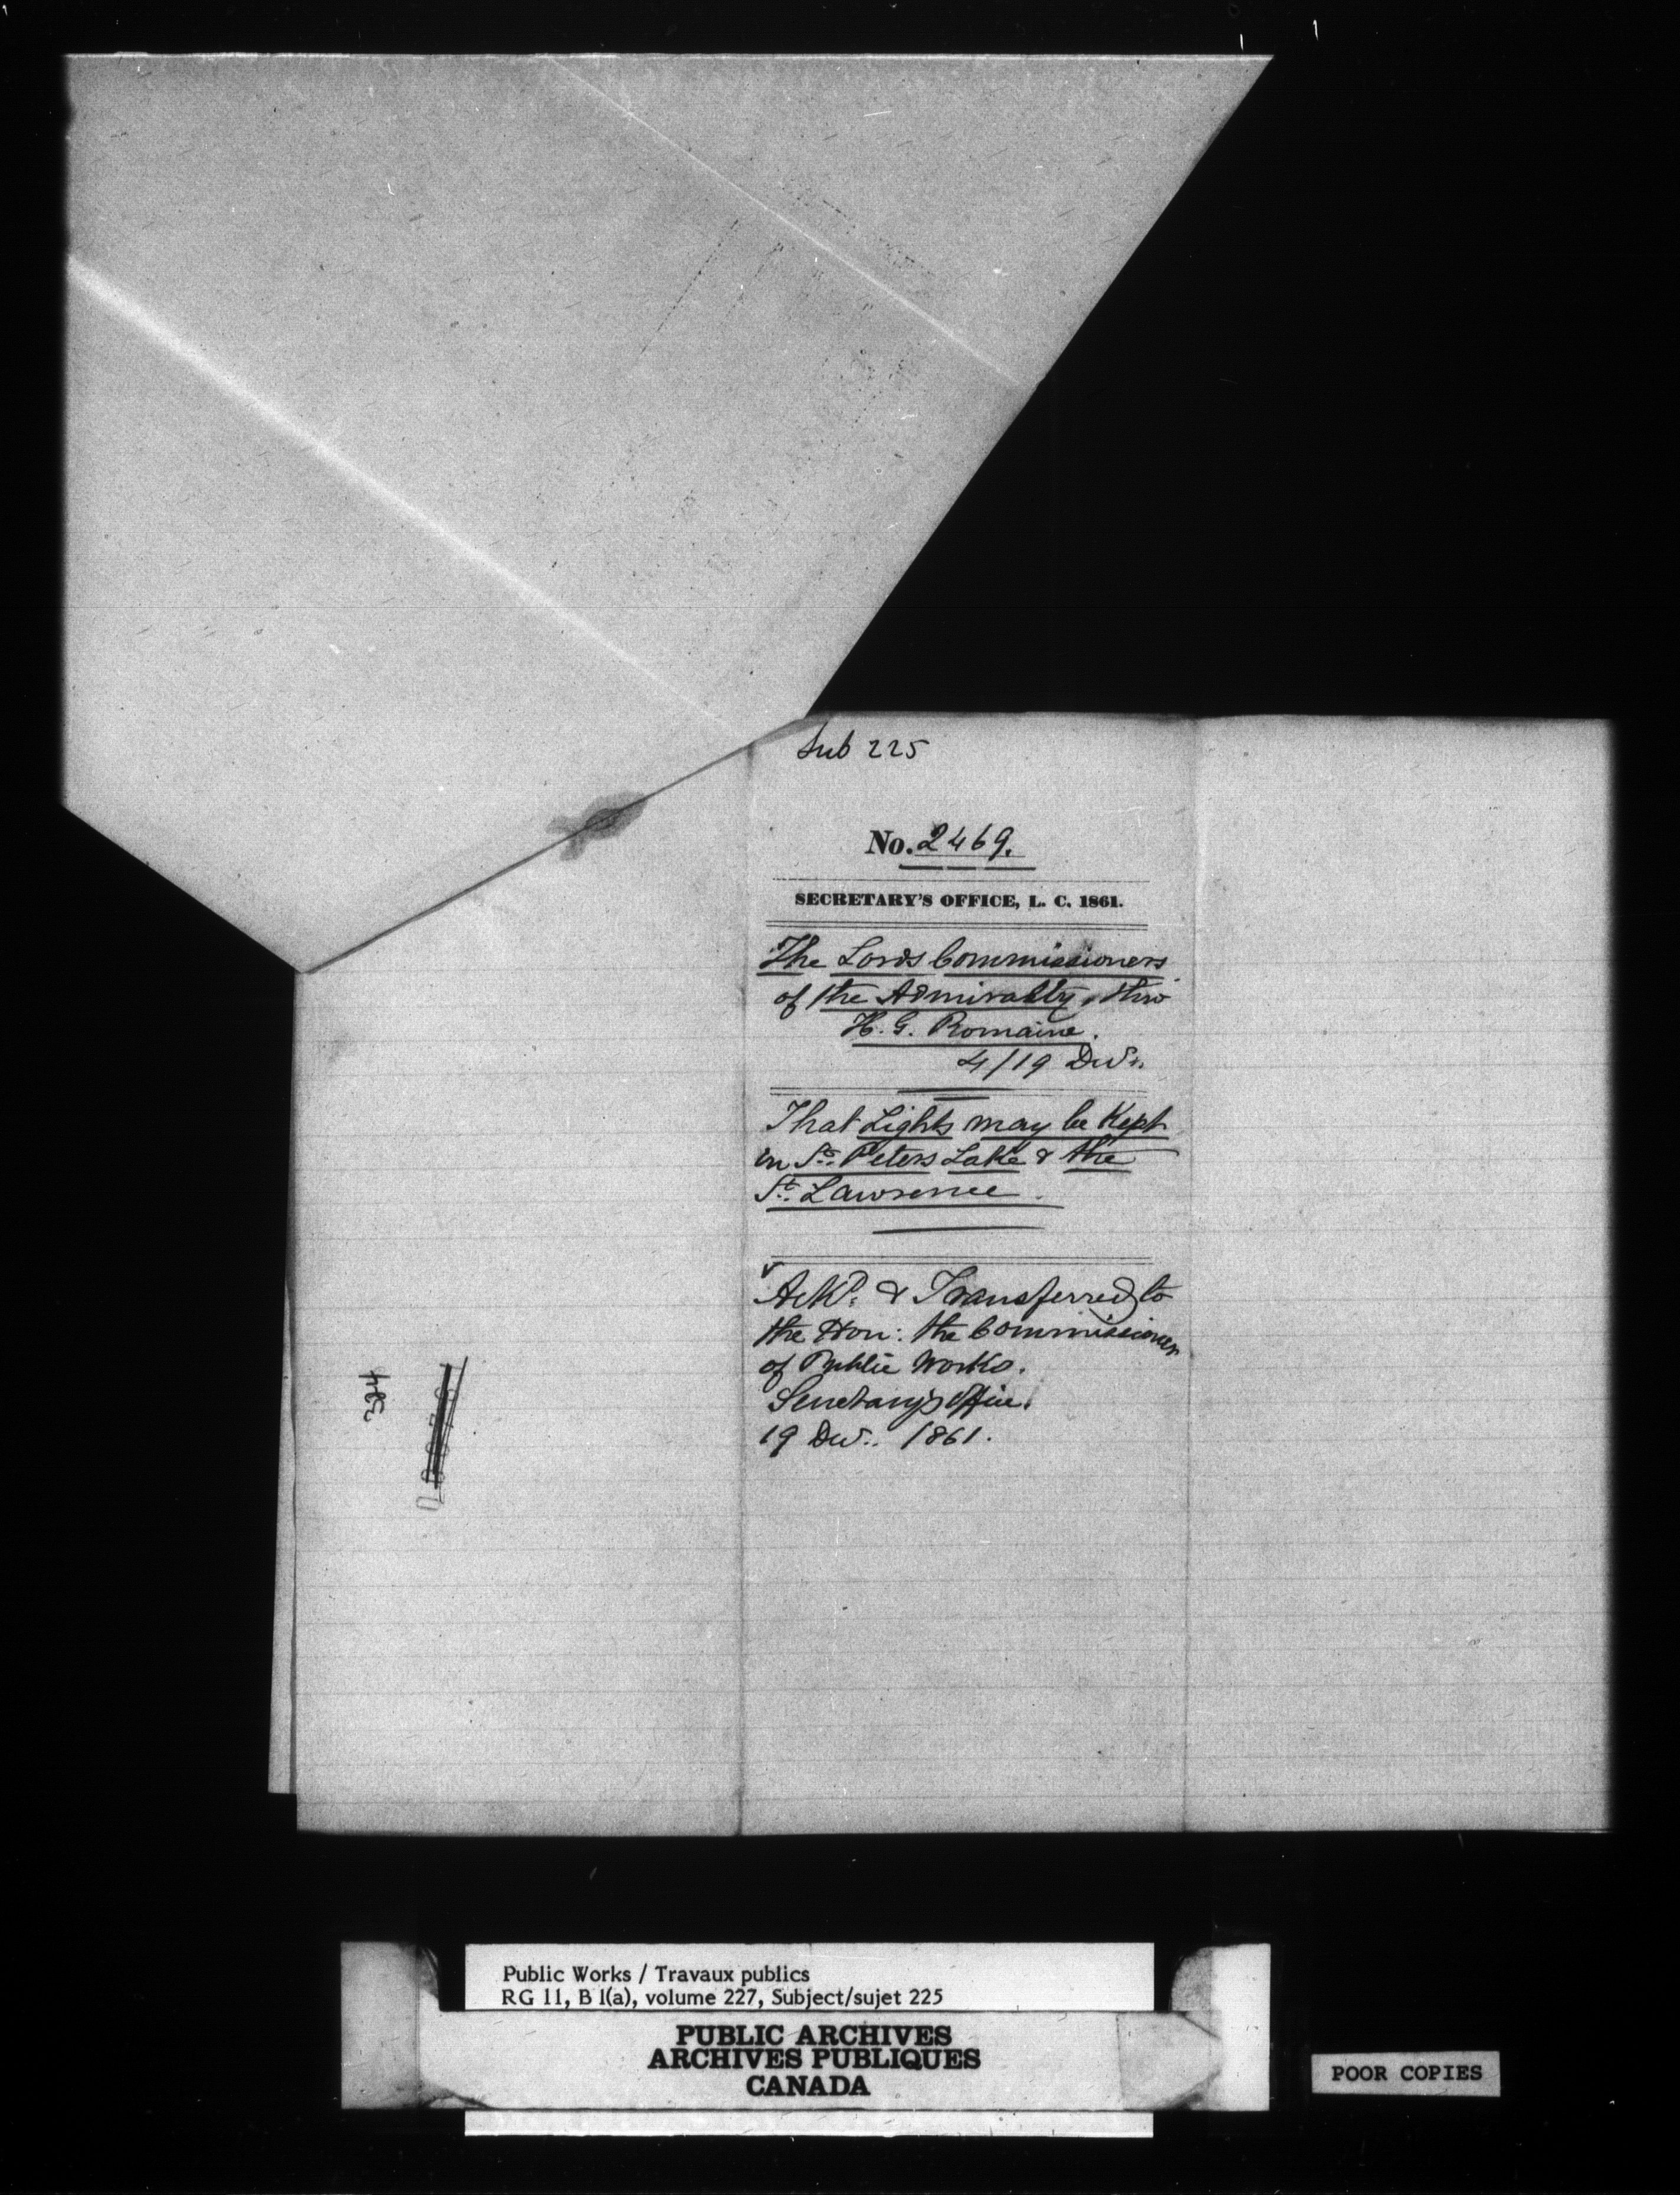 Sub 225
No. 2469.
SECRETARY'S OFFICE, L. C. 1861.
The Lords Commissioners
of the Admiralty, thro'
H. G. Romaine.
4/19 Decr.
That Lights may be Kept
in St. Peters Lake & the
St. Lawrence.
Ackd. & Transferred to
the Hon: the Commissioner
of Public Works.
Secretary's Office.
19 Decr. 1861.
324
Public Works / Travaux publics
RG 11, B 1(a), volume 227, Subject/sujet 225
PUBLIC ARCHIVES
ARCHIVES PUBLIQUES
CANADA
POOR COPIES